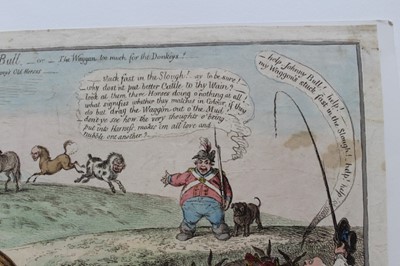 Bull, _ or _ The Waggon too much for the Donkeys!
_ stuck fast in the Slough! ay to be sure!
why dost nt put better Cattle to thy Wain?
look at them there Horses doing o' nothing at all!
what signifies whether they matches in Colour, if they
do but drag the Waggon out o' the Mud.
don't ye see how the very thoughts o' being
put into Harness makes 'em all love and
nubble one another?
_ help, Johnny Bull! help!
my Waggon's stuck fast in the Slough! help! help